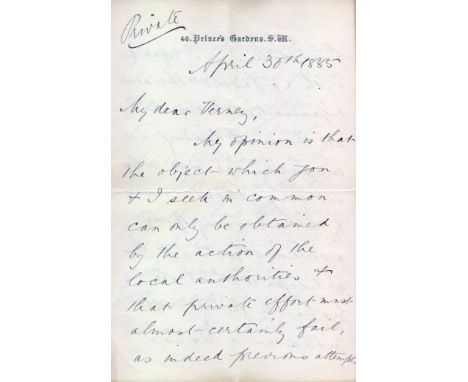 Private
40, Prince's Gardens. S.W.
April 30th 1885
My dear Verney,
My opinion is that
the object which you
& I seek in common
can only be obtained
by the action of the
local authorities &
that private effort must
almost certainly fail,
as indeed previous attempts